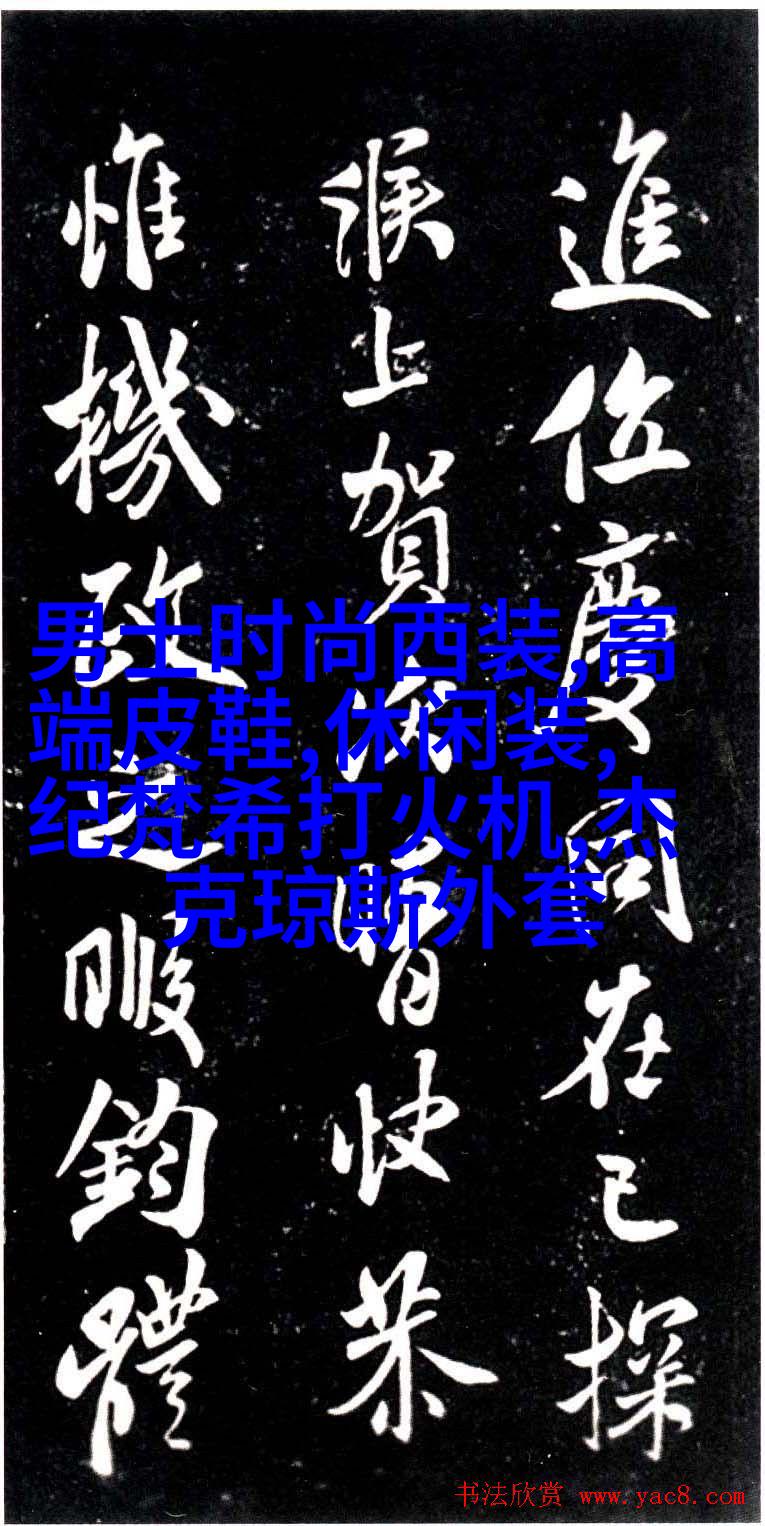 進位慶同在己探
候上賀
快恭
惟機政之暇鈞體
男士时尚西装,高
端皮鞋,休闲装,
纪梵希打火机,杰
克琼斯外套
书法欣赏 www.yac8.com